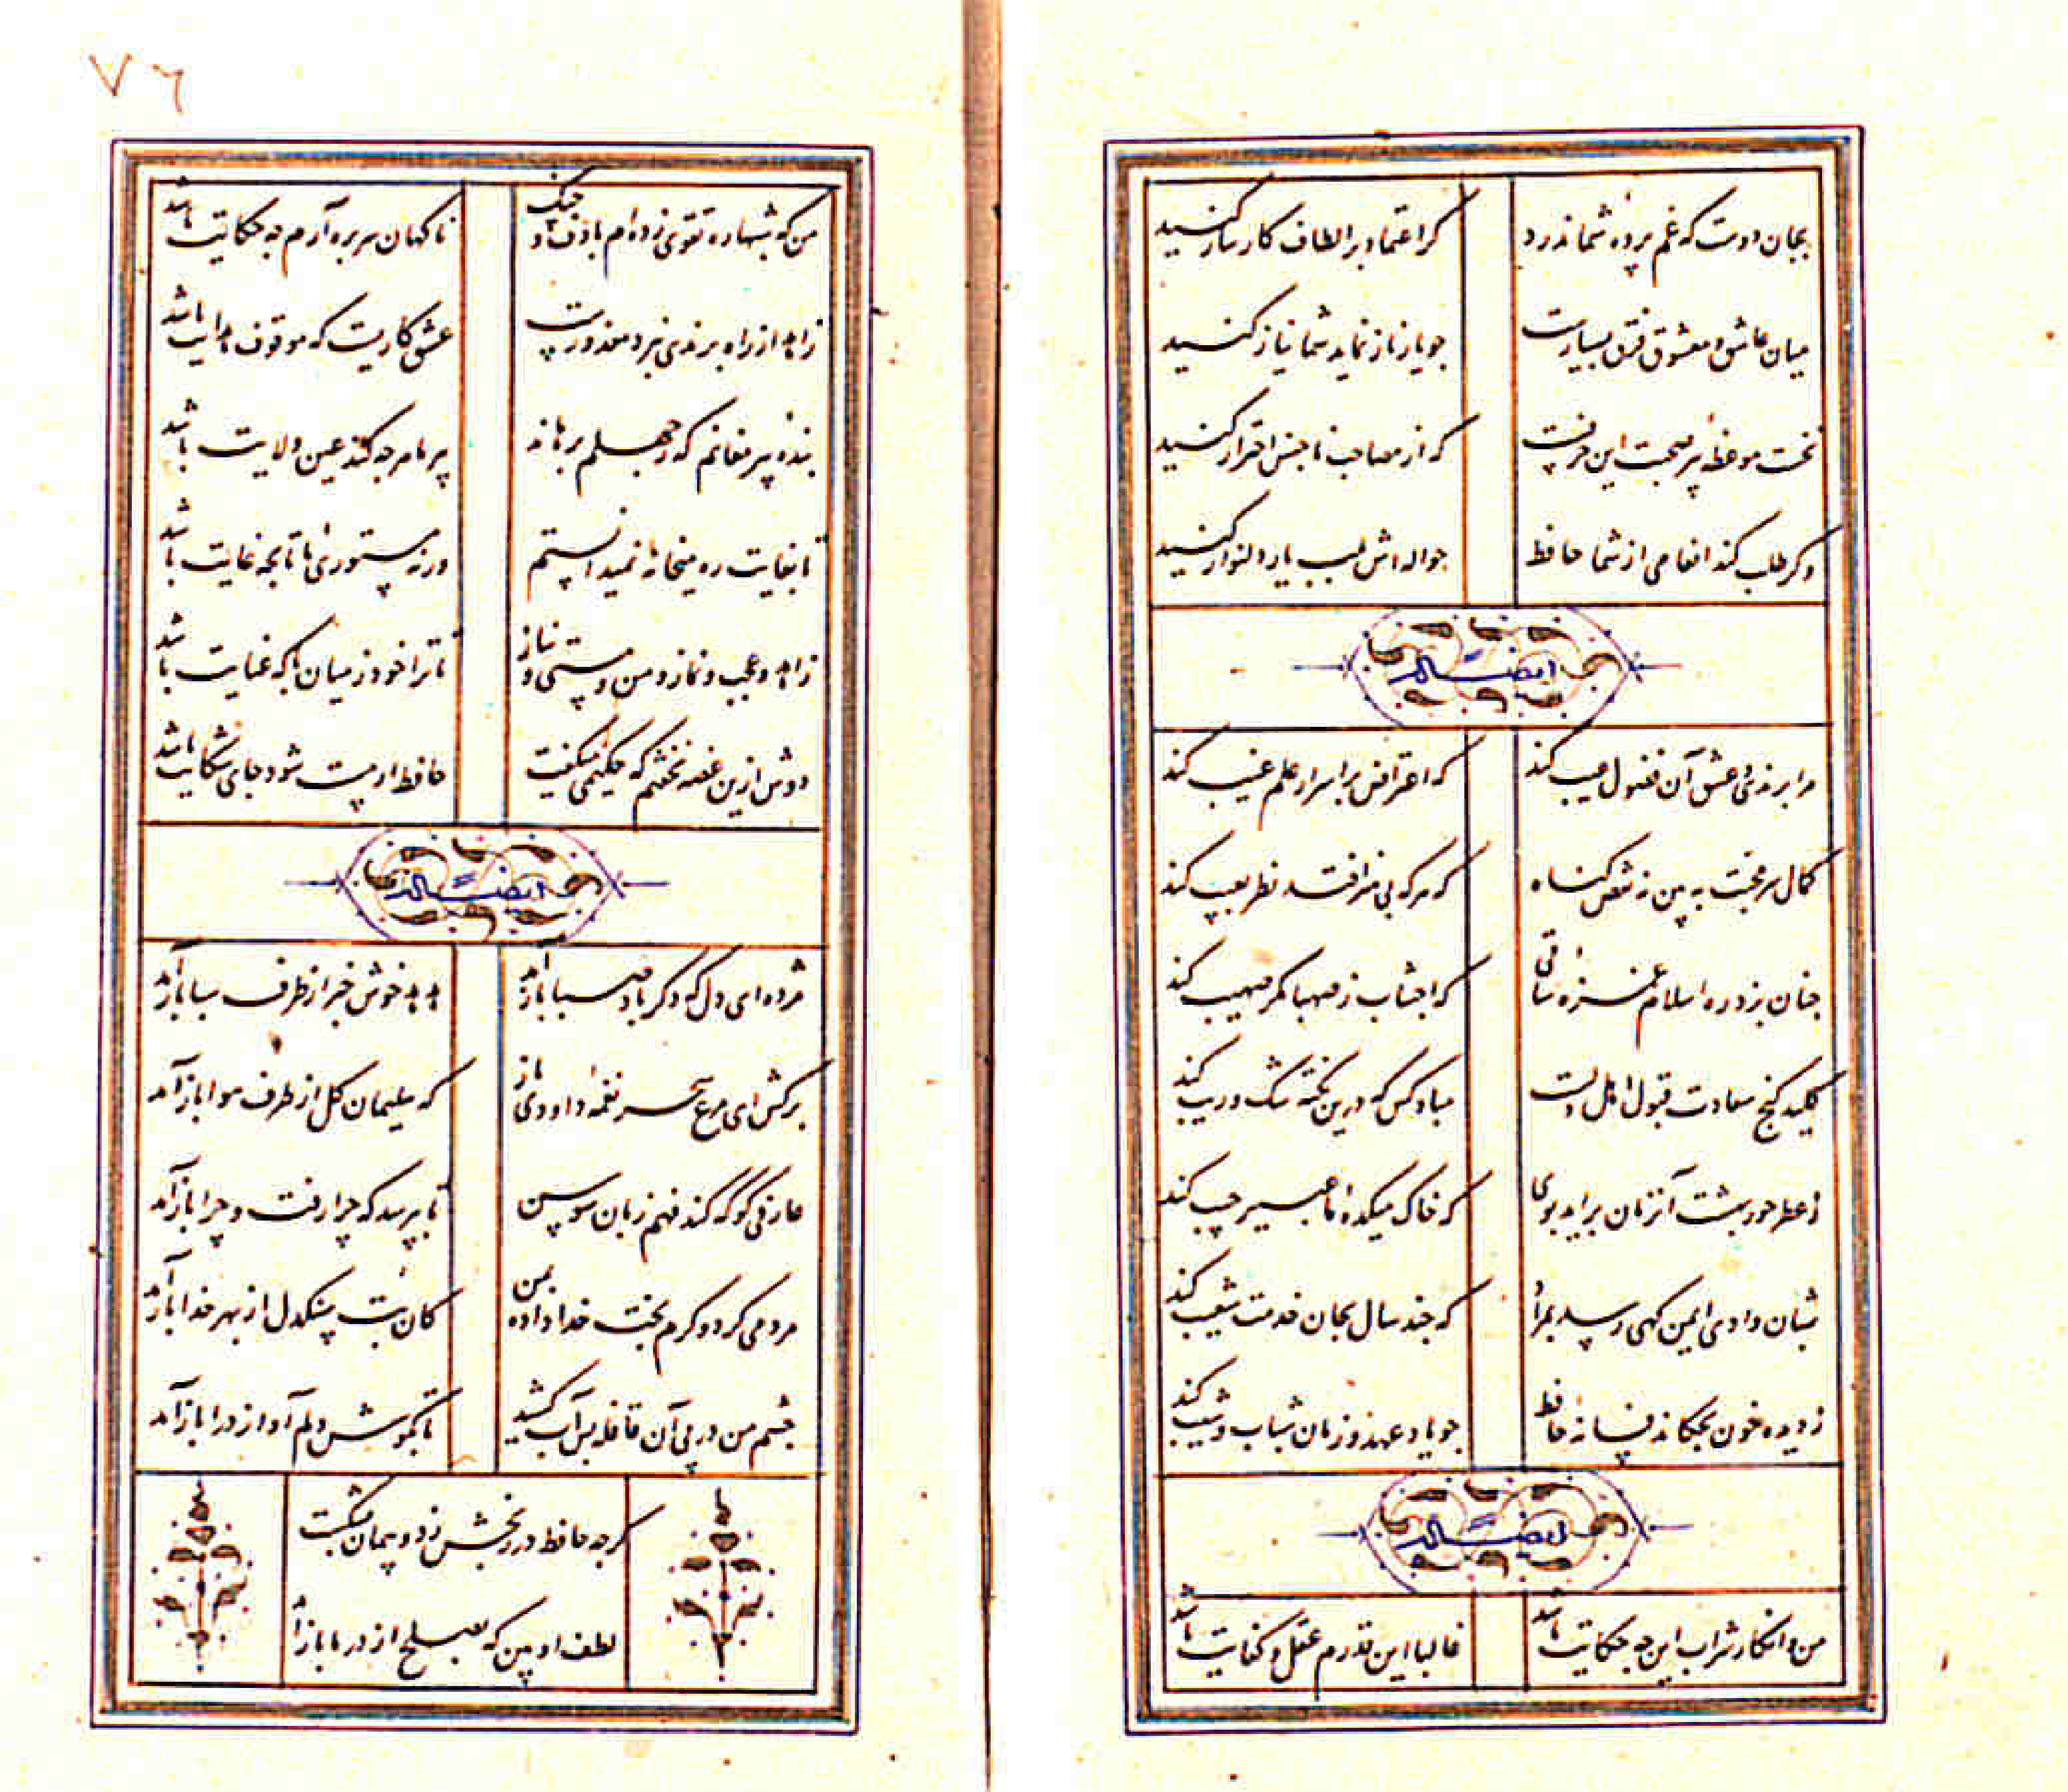 بجان دوست که غم پردهٔ شما ندرد
کر اعتماد بر الطاف کارساز کنید
میان عاشق و معشوق فرق بسیارست
جو یار ناز نماید شما نیاز کنید
نخست موعظهٔ پیر صحبت این حرفست
که از مصاحب ناجنس احتراز کنید
وکر طلب کند انعامی از شما حافظ
حواله اش بلب یار دلنواز کنید
ایضاً له
مرا برندی و عشق آن فضول عیب کند
که اعتراض بر اسرار علم غیب کند
کمال سر محبت ببین نه نقص کناه
که هرکه بی هنر افتد نظر بعیب کند
جنان بزد ره اسلام غمزهٔ ساقی
که اجتناب ز صهبا مکر صهیب کند
کلید کنج سعادت قبول اهل دلست
مباد کس که درین نکته شک و ریب کند
ز عطر حور بهشت آن زمان براید بوی
که خاک میکدهٔ ما عبیر جیب کند
شبان وادی ایمن کهی رسد بمراد
که جند سال بجان خدمت شعیب کند
ز دیده خون بجکاند فسانهٔ حافظ
جو یاد عهد و زمان شباب و شیب کند
ایضاً له
من و انکار شراب این جه حکایت باشد
غالبا این قدرم عقل و کفایت باشد
۷۶
من که شبها ره تقوی زده ام با دف و جنک
ناکهان سر بره آرم جه حکایت باشد
زاهد از راه برندی نبرد معذورست
عشق کاریست که موقوف هدایت باشد
بندهٔ پیر مغانم که ز جهلم برهاند
پیر ما هرجه کند عین ولایت باشد
تا بغایت ره میخانه نمیدانستم
ورنه مستوری ما تا بجه غایت باشد
زاهد و عجب و نماز و من و مستی و نیاز
تا ترا خود ز میان با که عنایت باشد
دوش ازین غصه نخفتم که حکیمی میکفت
حافظ ار مست شود جای شکایت باشد
ایضاً له
مژده ای دل که دکر باد صبا بازآمد
هدهد خوش خبر از طرف سبا بازآمد
برکش ای مرغ سحر نغمهٔ داودی باز
که سلیمان کل از طرف هوا بازآمد
عارفی کو که کند فهم زبان سوسن
تا بپرسد که چرا رفت و چرا بازآمد
مردمی کرد و کرم بخت خداداده بمن
کان بت سنکدل از بهر خدا بازآمد
جشم من در پی آن قافله بس آب کشید
تا بکوش دلم آواز درا بازآمد
کرجه حافظ در رنجش زد و پیمان بشکست
لطف او بین که بصلح از در ما بازآمد